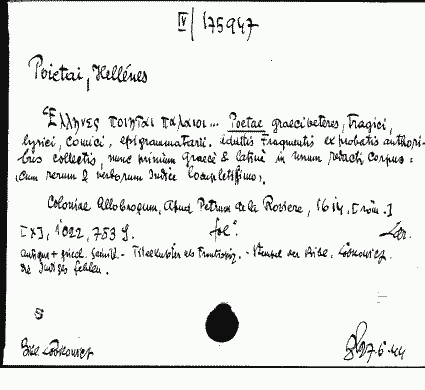 IV / 175947
Poietai, Hellénes
Ἕλληνες ποιηταὶ παλαιοι... Poetae graeci veteres, tragici,
lyrici, comici, epigrammatarii. additis Fragmentis ex probatis authori-
bus collectis, nunc primum Graecè & latinè in unum redacti corpus.
(cum rerum & verborum Indice locupletissimo).
Coloniae Allobrogum, Apud Petrum de la Roviere, 1614. [röm.]
[X], 1022, 753 S. fol°.
antiqua + griech. - Titelkupfer als - Stempel der Bibl. Lobkowicz
Die fehlen.
Bibl. Lobkowicz 27.6.44